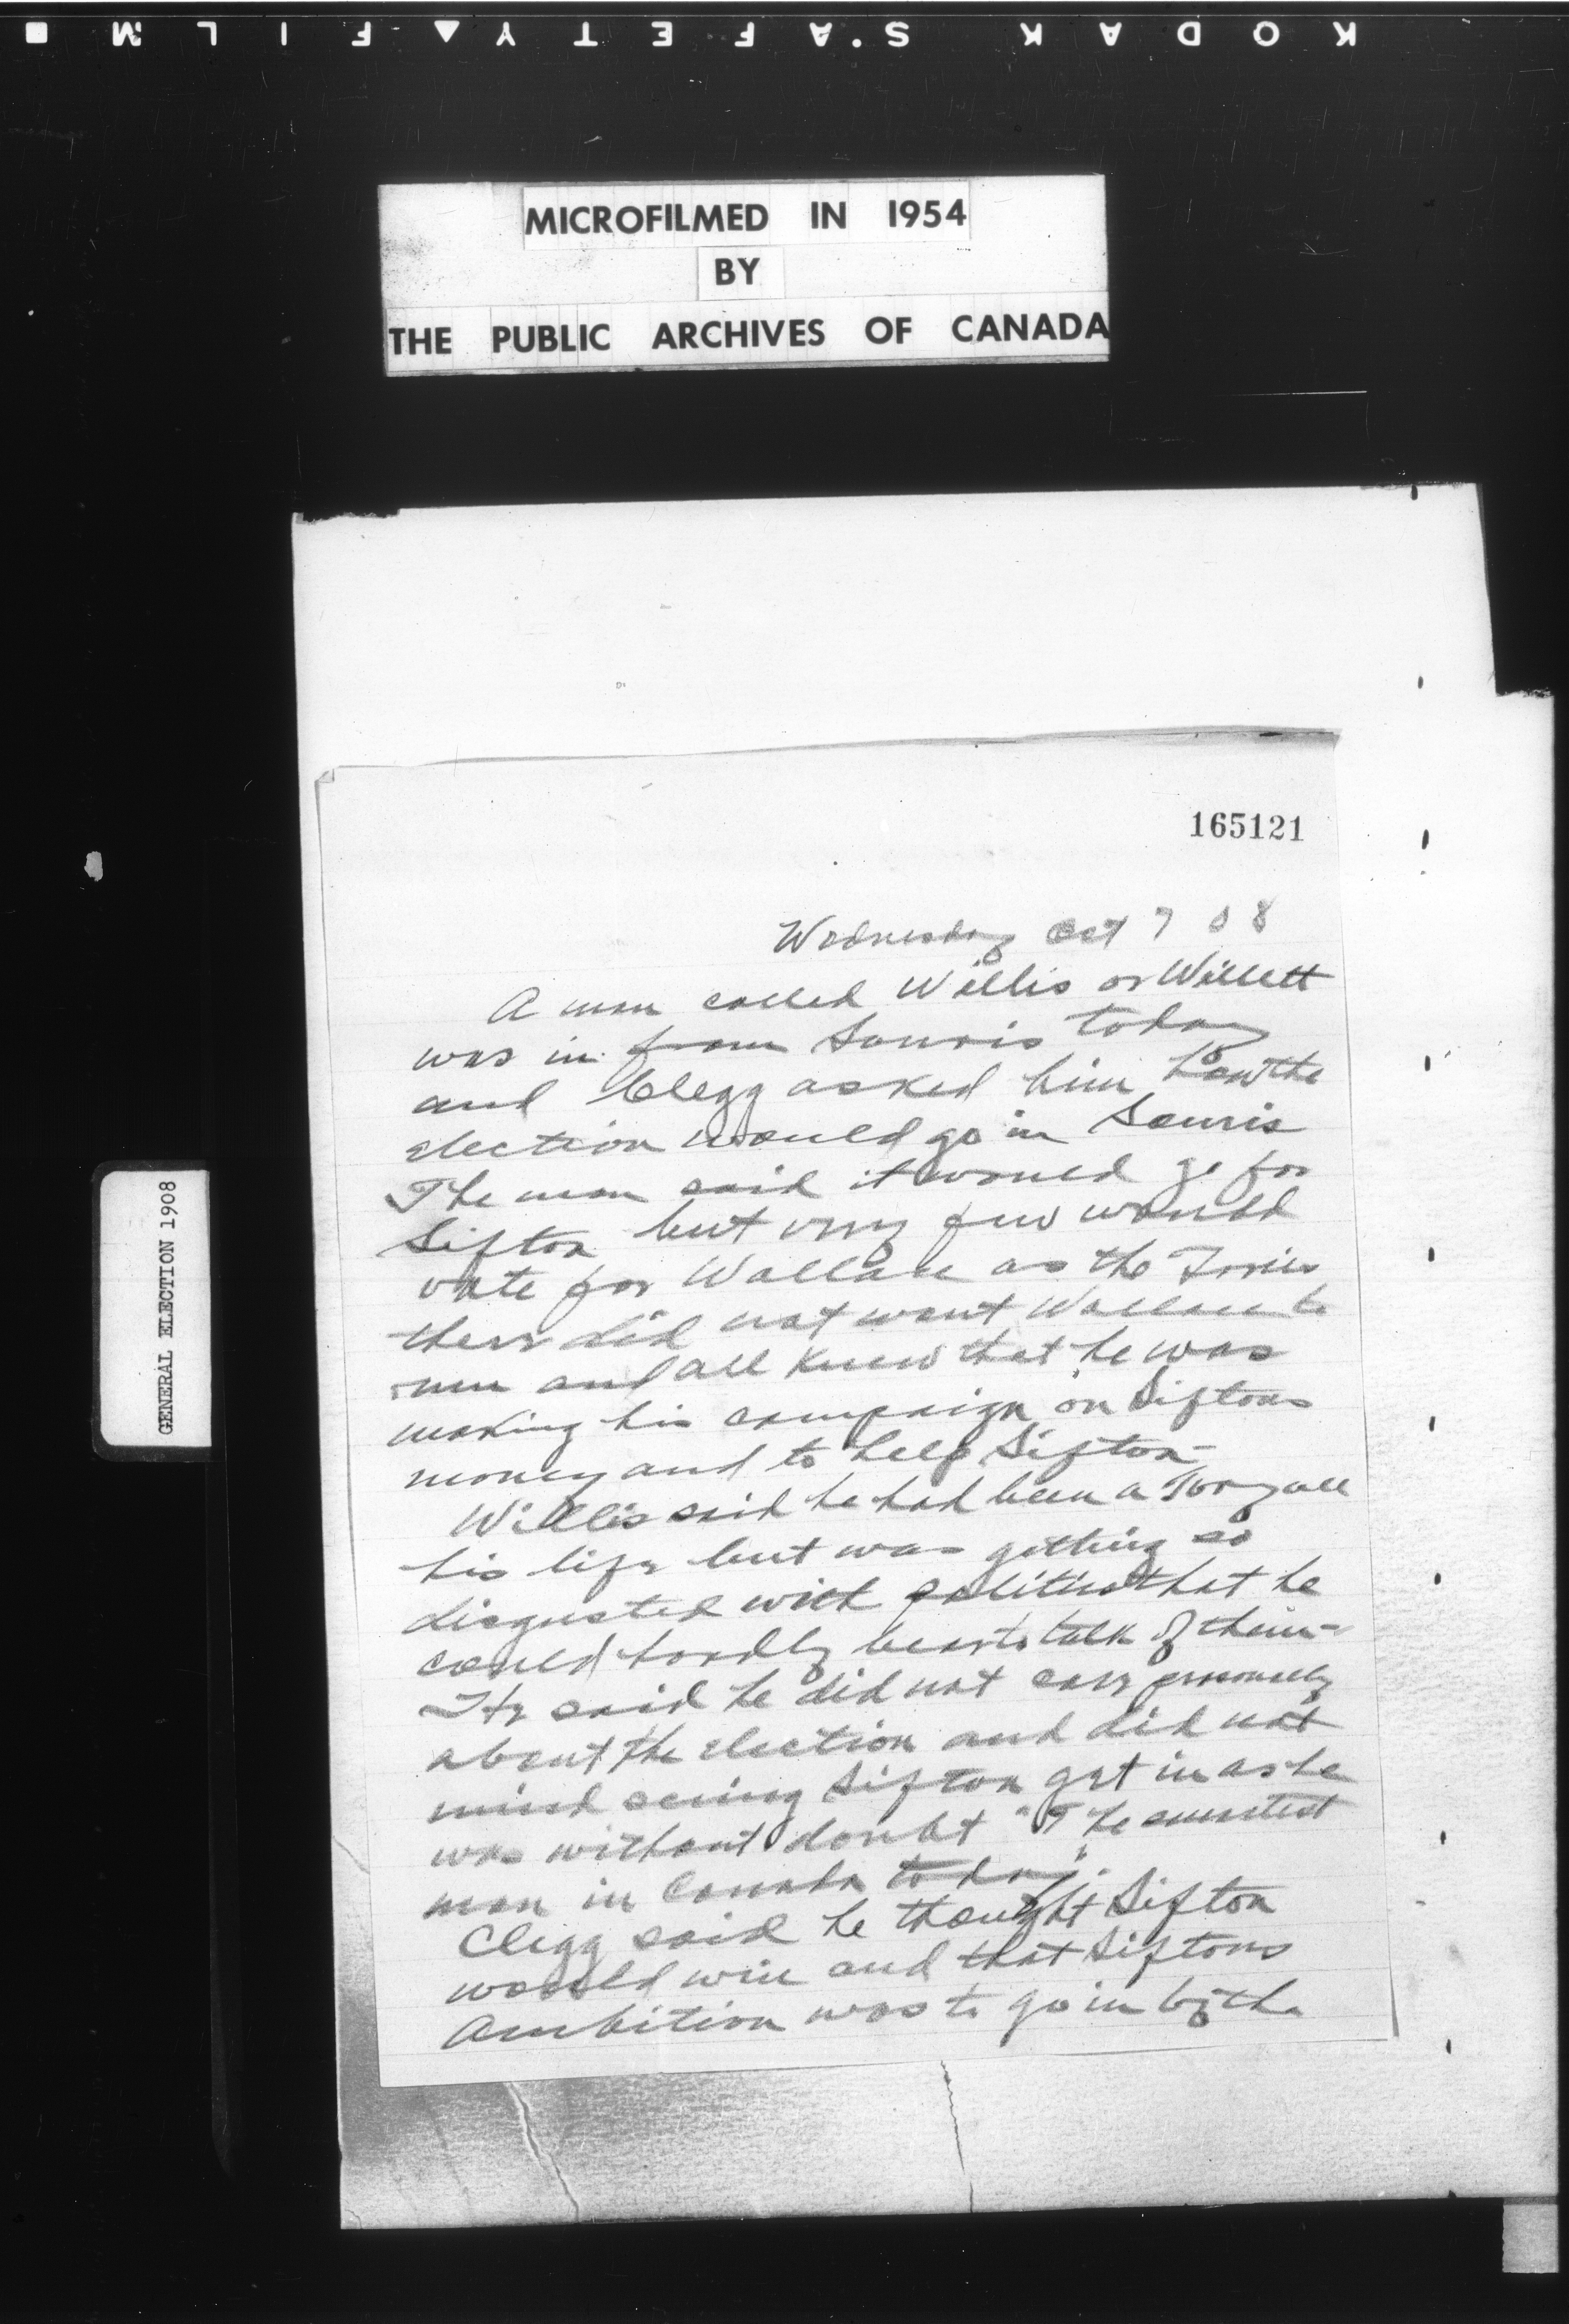 KODAK SAFETY FILM
MICROFILMED IN 1954
BY
THE PUBLIC ARCHIVES OF CANADA
165121
GENERAL ELECTION 1908
Wednesday Oct 7 08
A man called Willis or Willett
was in from Souris today
and Clegg asked him how the
election would go in Souris
The man said it would go for
Sifton but very few would
vote for Wallace as the Tories
there did not want Wallace to
run and all knew that he was
making his campaign on Siftons
money and to help Sifton -
Willis said he had been a Tory all
his life but was getting so
disgusted with politics that he
could hardly bear to talk of them -
He said he did not care personally
about the election and did not
mind seeing Sifton get in as he
was without doubt "The smartest
man in Canada today".
Clegg said he thought Sifton
would win and that Siftons
Ambition was to go in by the